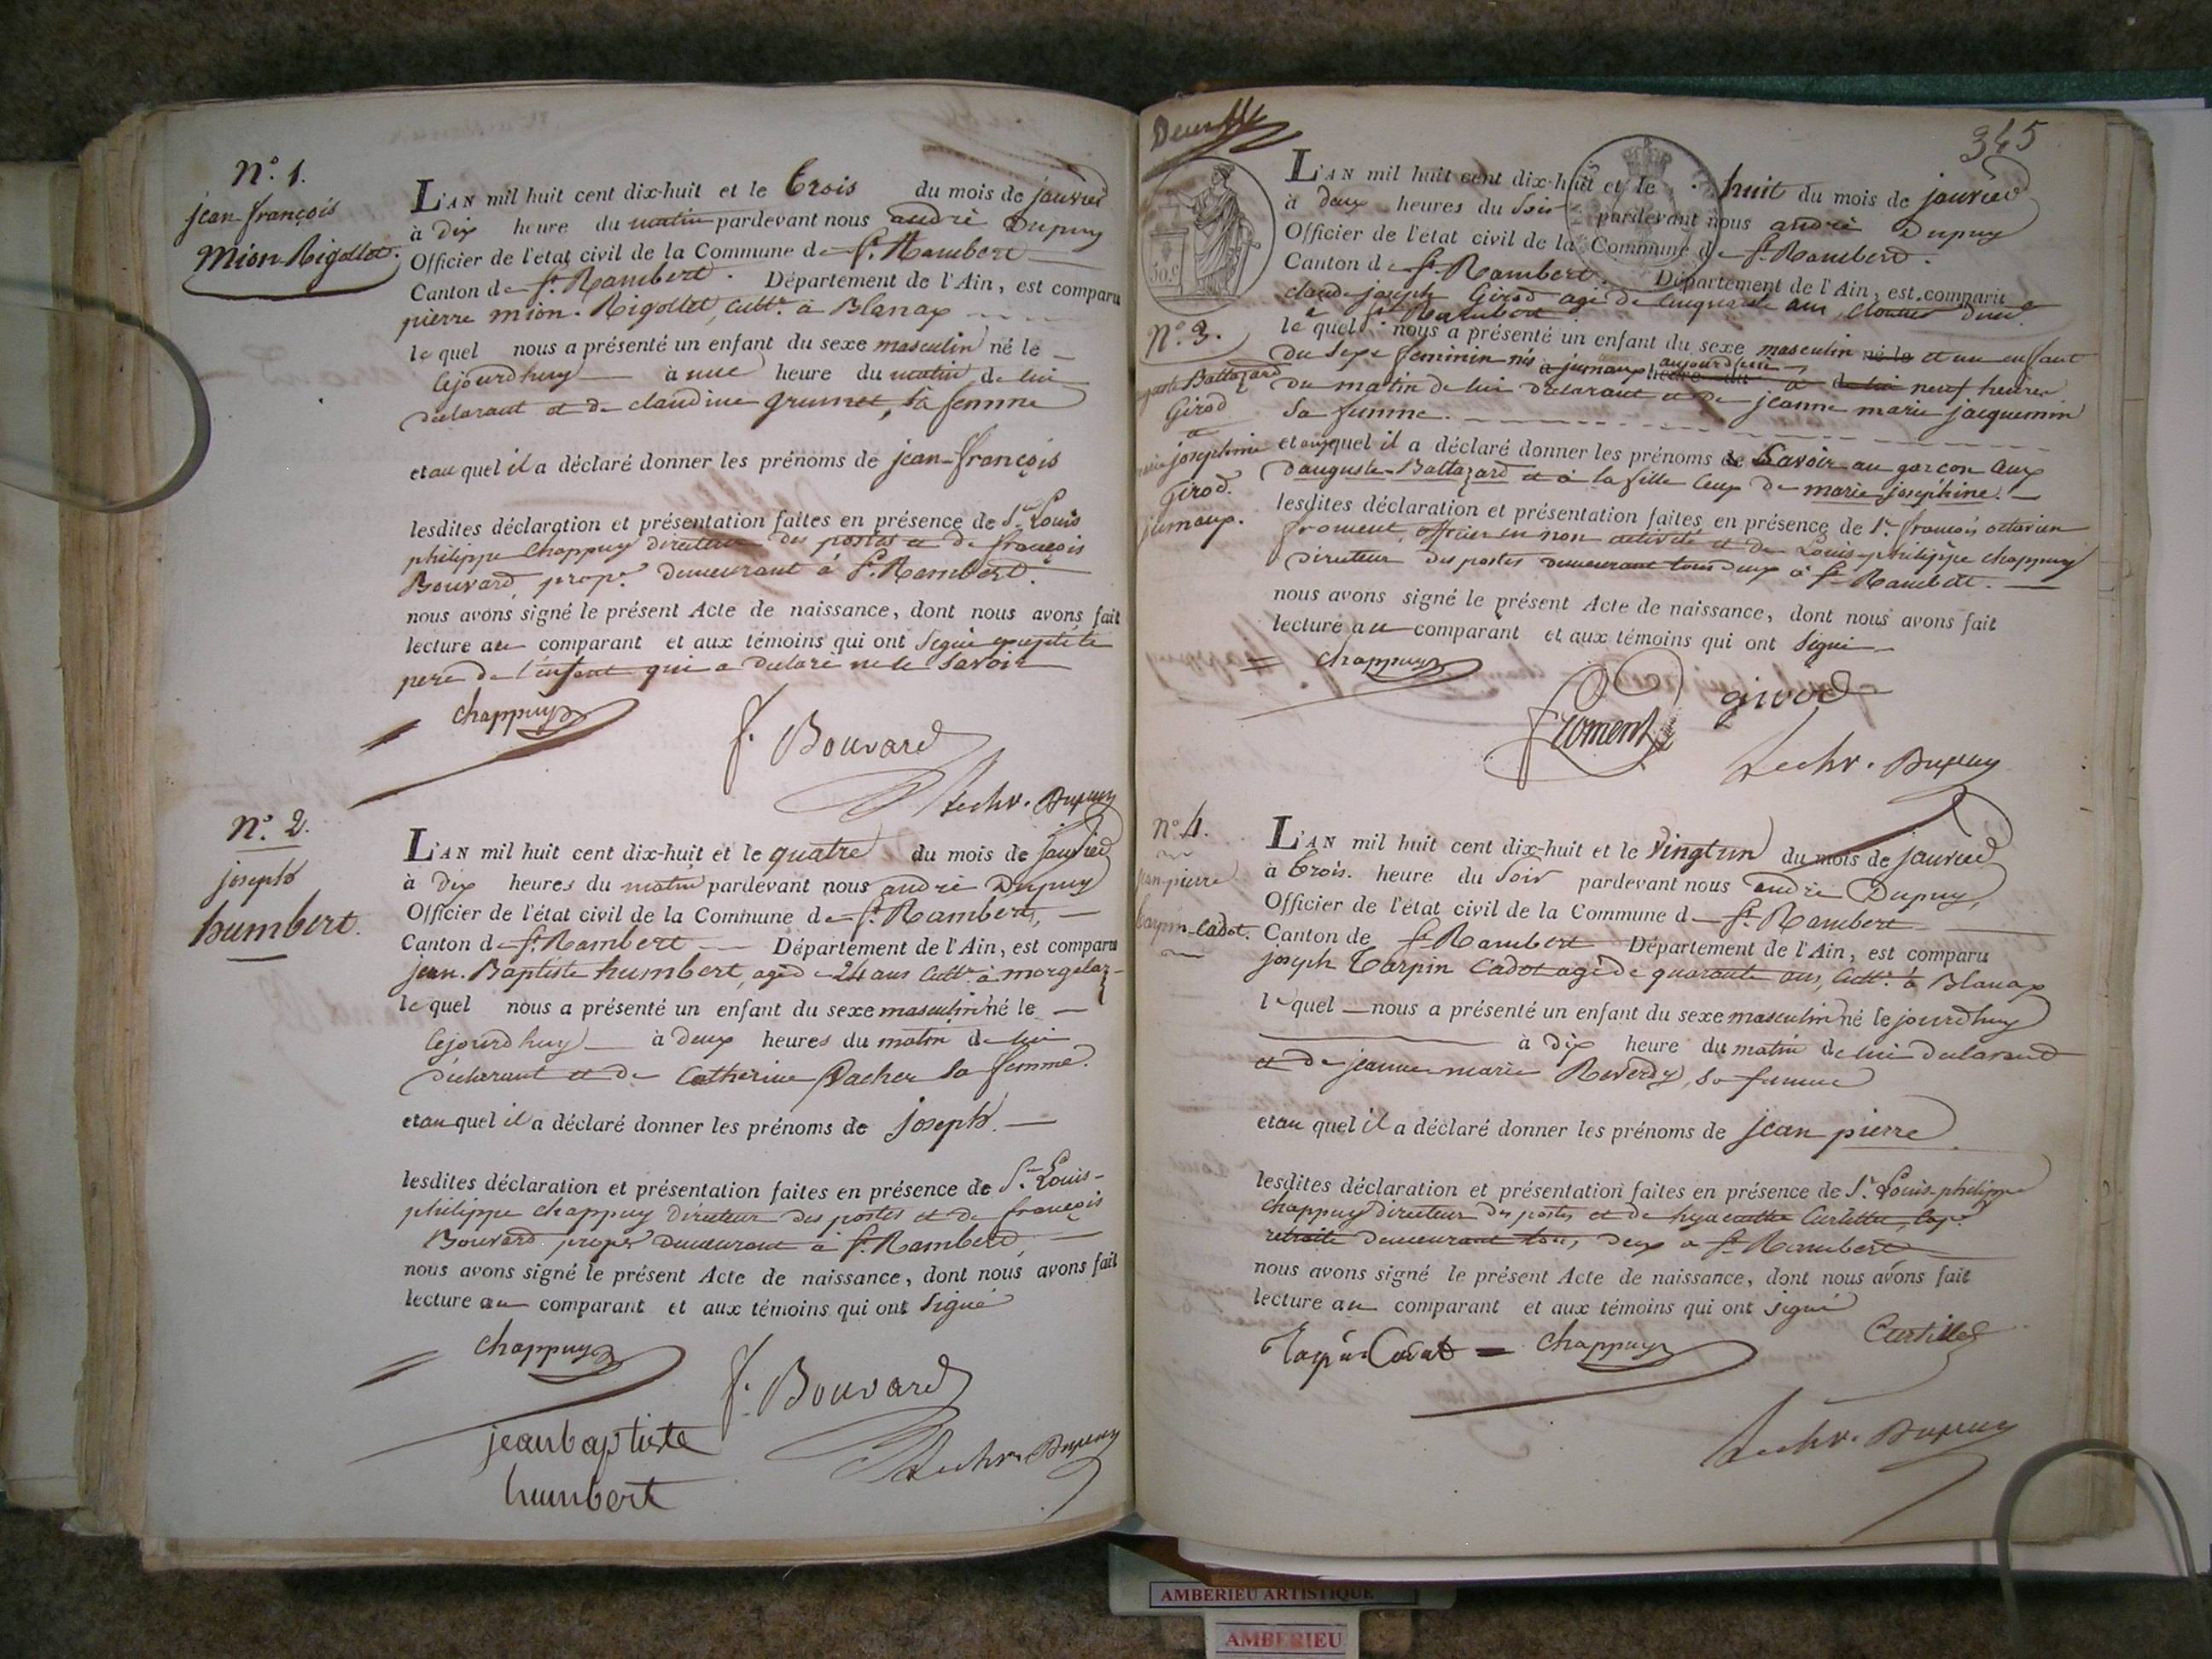 N.° 1.
jean-françois
Mion-Rigollet.
L'AN mil huit cent dix-huit et le trois du mois de janvier
à dix heure du matin pardevant nous andré Dupuy
Officier de l'état civil de la Commune de St. Rambert
Canton de St. Rambert. Département de l'Ain, est comparu
pierre mion-Rigollet, cultr. à Blanax
le quel nous a présenté un enfant du sexe masculin né le
cejourdhuy à une heure du matin de lui
déclarant et de claudine grumet, sa femme
et au quel il a déclaré donner les prénoms de jean-françois
lesdites déclaration et présentation faites en présence de Sr. Louis
philippe Chappuy directeur des postes et de françois
Bouvard, propre. demeurant à St. Rambert.
nous avons signé le présent Acte de naissance, dont nous avons fait
lecture au comparant et aux témoins qui ont signé excepté le
pere de l'enfant qui a déclaré ne le savoir
chappuy
f. Bouvard
Dupuy
N.° 2.
joseph
humbert.
L'AN mil huit cent dix-huit et le quatre du mois de janvier
à dix heures du matin pardevant nous andré Dupuy
Officier de l'état civil de la Commune de St. Rambert,
Canton de St. Rambert Département de l'Ain, est comparu
jean-Baptiste humbert, agé de 24 ans cultr. à morgelaz
le quel nous a présenté un enfant du sexe masculin né le
cejourdhuy à deux heures du matin de lui
déclarant et de Catherine Vacher sa femme.
et au quel il a déclaré donner les prénoms de joseph.
lesdites déclaration et présentation faites en présence de Sr. Louis-
philippe chappuy directeur des postes et de françois
Bouvard propre demeurant à St. Rambert,
nous avons signé le présent Acte de naissance, dont nous avons fait
lecture au comparant et aux témoins qui ont signé
chappuy
f. Bouvard
jeanbaptiste
humbert
Dupuy
345
50.c
L'AN mil huit cent dix-huit et le huit du mois de janvier
à deux heures du soir pardevant nous andré Dupuy
Officier de l'état civil de la Commune de St. Rambert.
Canton de St. Rambert. Département de l'Ain, est comparu
claude joseph Girod agé de cinquante ans,
à St. Rambert
N.° 3.
Baltazard
Girod
et
josephine
Girod.
jumaux.
le quel nous a présenté un enfant du sexe masculin né le et un enfant
du sexe feminin nés jumaux aujourdhui heure du à de lui neuf heures
du matin de lui déclarant et de jeanne marie jacquemin
sa femme.
et auxquel il a déclaré donner les prénoms de Savoir au garcon ceux
d'auguste-Baltazard et à la fille ceux de marie josephine.
lesdites déclaration et présentation faites en présence de Sr. françois octavien
froment, officier en non activité et de Louis-philippe chappuy
directeur des postes demeurant tous deux à St. Rambert.
nous avons signé le présent Acte de naissance, dont nous avons fait
lecture au comparant et aux témoins qui ont signé
chappuy
froment
girod
Dupuy
N.° 4.
jean-pierre
Tarpin-Cadot.
L'AN mil huit cent dix-huit et le vingt un du mois de janvier
à trois. heure du soir pardevant nous andré Dupuy,
Officier de l'état civil de la Commune d St. Rambert
Canton de St. Rambert Département de l'Ain, est comparu
joseph Tarpin Cadot agé de quarante ans, cultr. à Blanax
le quel nous a présenté un enfant du sexe masculin né le jourdhuy
à dix heure du matin de lui declarant
et de jeanne-marie Reverdy, sa femme
et au quel il a déclaré donner les prénoms de jean pierre
lesdites déclaration et présentation faites en présence de Sr. Louis-philippe
chappuy directeur des postes et de hyacinthe Curtillet, cape.
retraité demeurant tous deux à St. Rambert
nous avons signé le présent Acte de naissance, dont nous avons fait
lecture au comparant et aux témoins qui ont signé
Tarpin Cadot chappuy Curtillet
Dupuy
AMBERIEU ARTISTIQUE
AMBERIEU